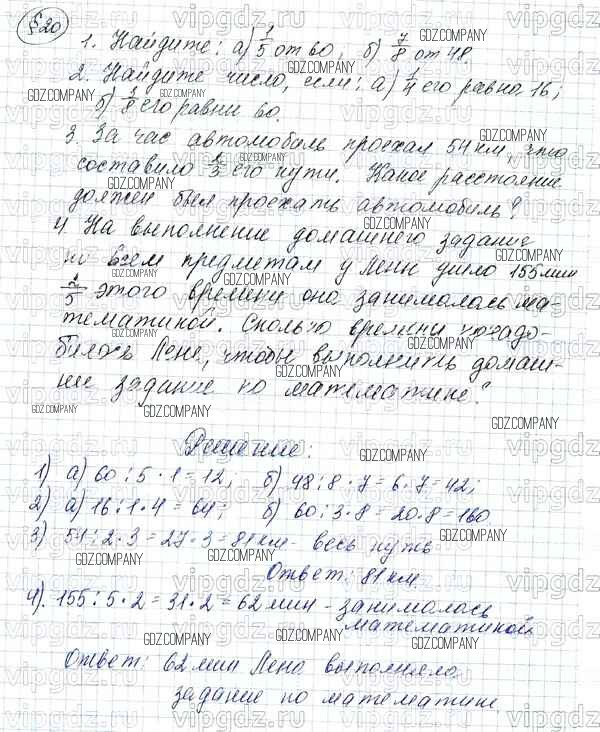 §20
1. Найдите: а) 1/5 от 60, б) 7/8 от 48.
2. Найдите число, если: а) 1/4 его равна 16;
б) 3/8 его равни 60.
3. За час автомобиль проехал 54 км, это
составило 2/3 его пути. Какое расстояние
должен был проехать автомобиль?
4. На выполнение домашнего задание
по всем предметам у Лены ушло 155 мин
2/5 этого времени она занималась ма-
тематикой. Сколько времени понадо-
билось Лене, чтобы выполнить домаш-
ние задание по математике?
Решение:
1) а) 60:5·1=12; б) 48:8·7=6·7=42;
2) а) 16:1·4=64; б) 60:3·8=20·8=160
3) 54:2·3=27·3=81 км - весь путь
Ответ: 81 км.
4). 155:5·2=31·2=62 мин - занималась
математикой
Ответ: 62 мин Лена выполняла
задание по математике